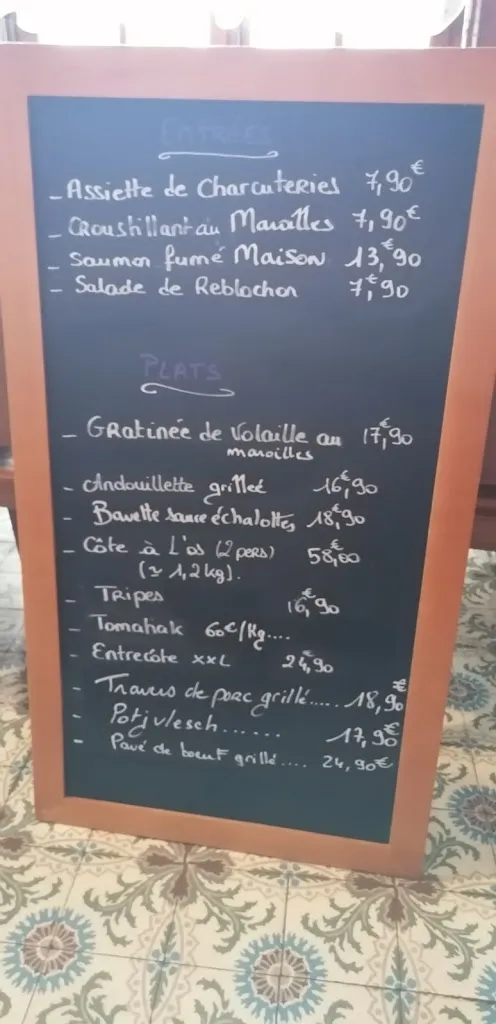 ENTRÉES
- Assiette de Charcuteries 7,90€
- Croustillant au Maroilles 7,90€
- Saumon fumé Maison 13,€90
- Salade de Reblochon 7,€90
PLATS
- GRatinée de Volaille au 17,€90
maroilles
- Andouillette grillée 16,€90
- Bavette sauce échalottes 18,€90
- Côte à L'os (2 pers) 58,€00
(≃ 1,2kg).
- Tripes 16,€90
- Tomahak 60€/Kg....
- Entrecôte xxL 24,€90
- Travers de porc grillé..... 18,90€
- Potjvlesch...... 17,90€
- Pavé de boeuf grillé.... 24,90€